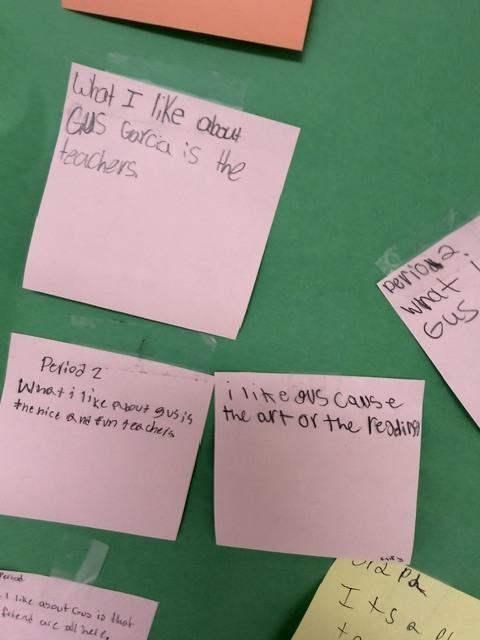 What I like about
GUS Garcia is the
teachers.
Period 2.
what I
Gus
Period 2
What i like about gus is
the nice and fun teachers
i like gus cause
the art or the reading
Period
I like about Gus is that
friend are all here.
Its a